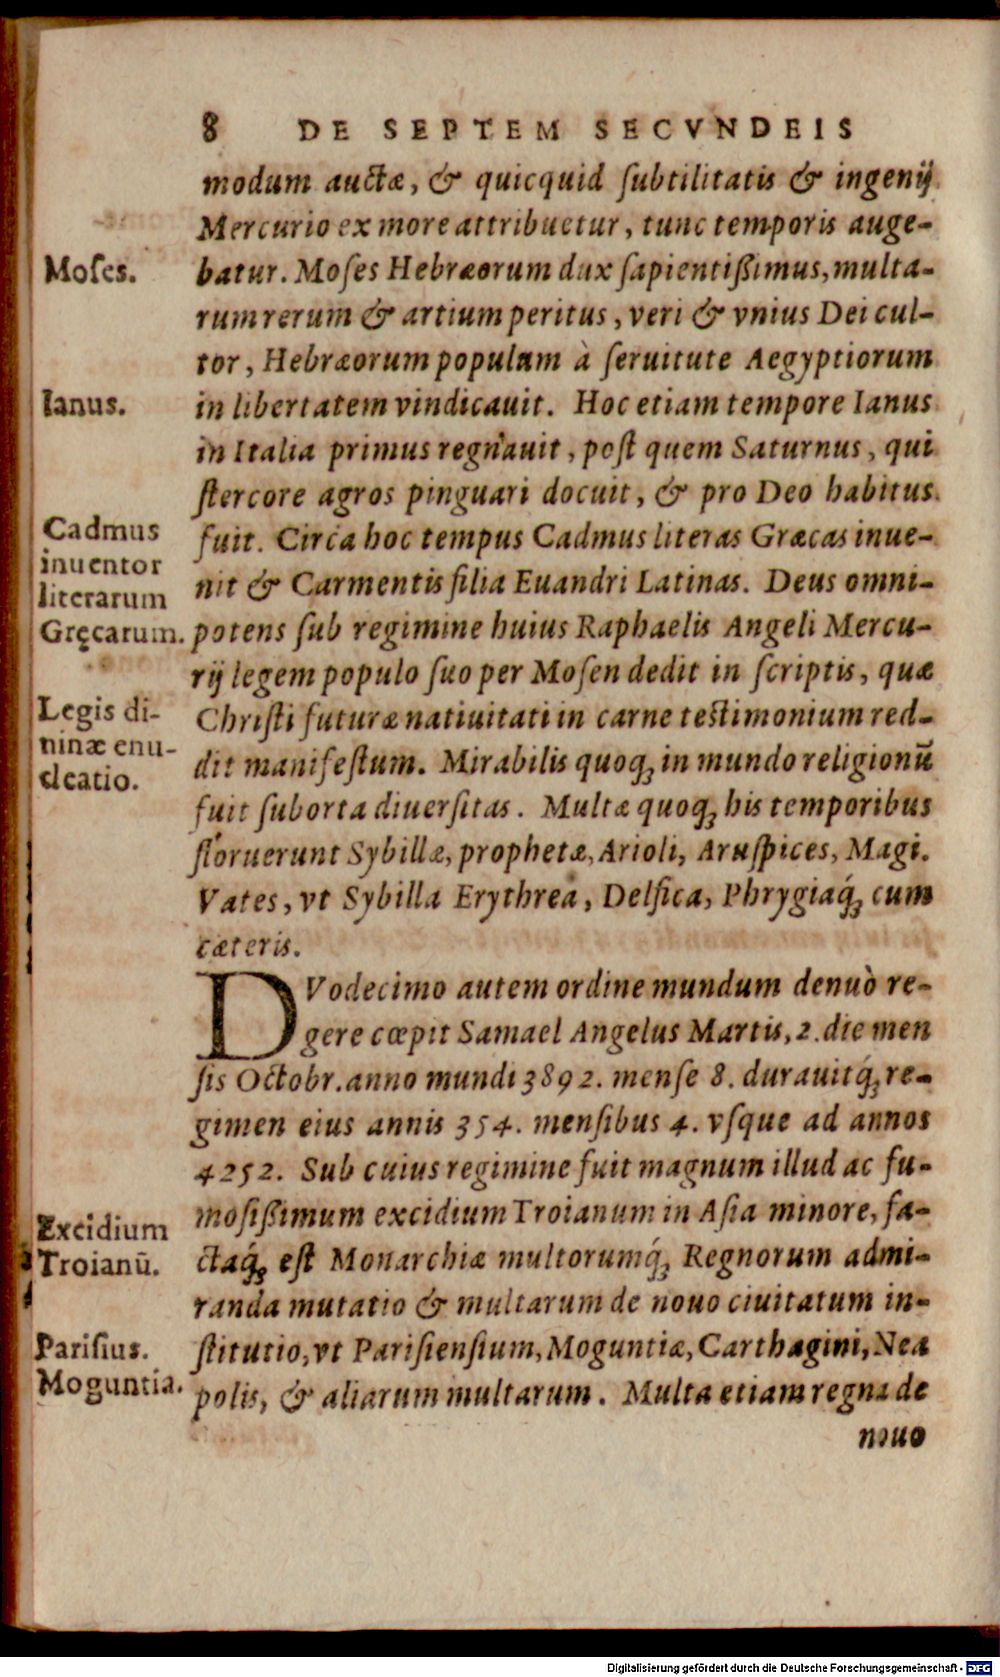 8 DE SEPTEM SECVNDEIS
modum auctæ, & quicquid ſubtilitatis & ingenij
Mercurio ex more attribuetur, tunc temporis auge-
Moſes.
batur. Moſes Hebræorum dux ſapientißimus, multa-
rum rerum & artium peritus, veri & vnius Dei cul-
tor, Hebræorum populum à ſeruitute Aegyptiorum
Ianus.
in libertatem vindicauit. Hoc etiam tempore Ianus
in Italia primus regnauit, poſt quem Saturnus, qui
ſtercore agros pinguari docuit, & pro Deo habitus
Cadmus
inuentor
literarum
Gręcarum.
fuit. Circa hoc tempus Cadmus literas Græcas inue-
nit & Carmentis filia Euandri Latinas. Deus omni-
potens ſub regimine huius Raphaelis Angeli Mercu-
rij legem populo ſuo per Moſen dedit in ſcriptis, quæ
Legis di-
uinæ enu-
cleatio.
Chriſti futuræ natiuitati in carne teſtimonium red-
dit manifeſtum. Mirabilis quoq; in mundo religionũ
fuit ſuborta diuerſitas. Multæ quoq; his temporibus
floruerunt Sybillæ, prophetæ, Arioli, Aruſpices, Magi.
Vates, vt Sybilla Erythrea, Delfica, Phrygiaq́; cum
cæteris.
DVodecimo autem ordine mundum denuò re-
gere cœpit Samael Angelus Martis, 2. die men
ſis Octobr. anno mundi 3892. menſe 8. durauitq́; re-
gimen eius annis 354. menſibus 4. vſque ad annos
4252. Sub cuius regimine fuit magnum illud ac fa-
Excidium
Troianũ.
moſißimum excidium Troianum in Aſia minore, fa-
ctaq́; eſt Monarchiæ multorumq́; Regnorum admi-
randa mutatio & multarum de nouo ciuitatum in-
Pariſius.
Moguntia.
ſtitutio, vt Pariſienſium, Moguntiæ, Carthagini, Nea
polis, & aliarum multarum. Multa etiam regna de
nouo
Digitalisierung gefördert durch die Deutsche Forschungsgemeinschaft - DFG